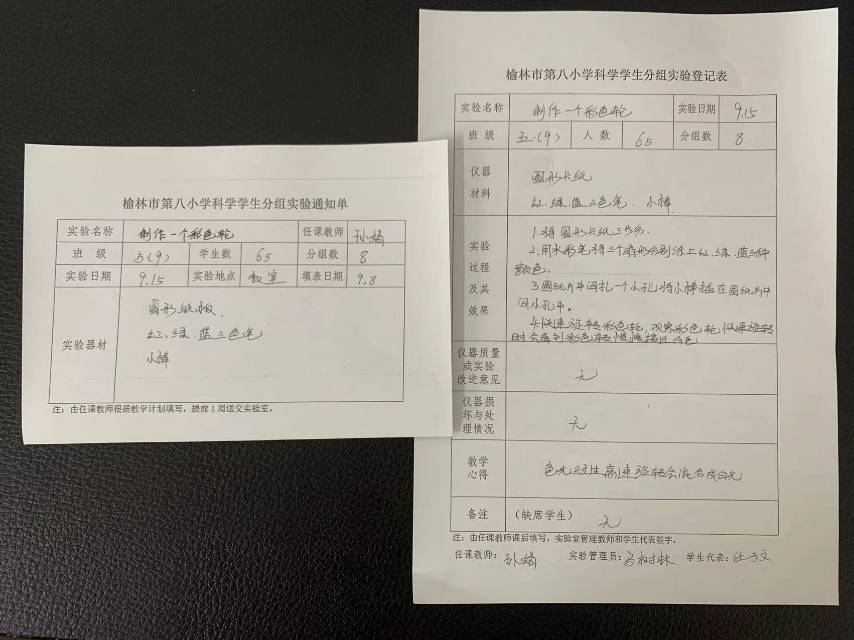 榆林市第八小学科学学生分组实验通知单
实验名称 制作一个彩色轮 任课教师 孙娟
班 级 5(9) 学生数 65 分组数 8
实验日期 9.15 实验地点 教室 填表日期 9.8
实验器材
圆形纸板,
红、绿、蓝三色笔
小棒
注：由任课教师根据教学计划填写，提前1周送交实验室。
榆林市第八小学科学学生分组实验登记表
实验名称 制作一个彩色轮 实验日期 9.15
班 级 五.(9) 人 数 65 分组数 8
仪器
材料
圆形卡纸
红、绿、蓝三色笔、小棒
实验
过程
及其
效果
1.将圆形卡纸三等分.
2.用水彩笔将三个扇形分别涂上红、绿、蓝三种
颜色.
3.圆纸片中间扎一个小孔,将小棒插在圆纸片中
间小孔中。
4.快速旋转彩色轮,观察彩色轮,快速旋转
时会看到彩色轮慢慢接近白色
仪器质量
或实验
改进意见
无
仪器损
坏与处
理情况
无
教学
心得
色光经过高速旋转会混合成白光
备注 （缺席学生） 无
注：由任课教师课后填写，实验室管理教师和学生代表签字。
任课教师：孙娟 实验管理员：树林 学生代表：